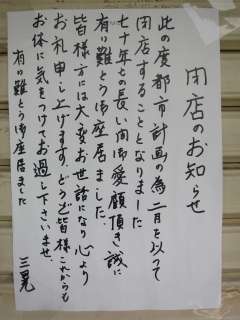 閉店のお知らせ
此の度都市計画の為二月を以って
閉店することとなりました
七十年もの長い間御愛願頂き誠に
有り難とう御座居ました。
皆様方には大変お世話になり心より
お礼申し上げます。どうぞ皆様これからも
お体に気をつけてお過し下さいませ、
有り難とう御座居ました
三晃